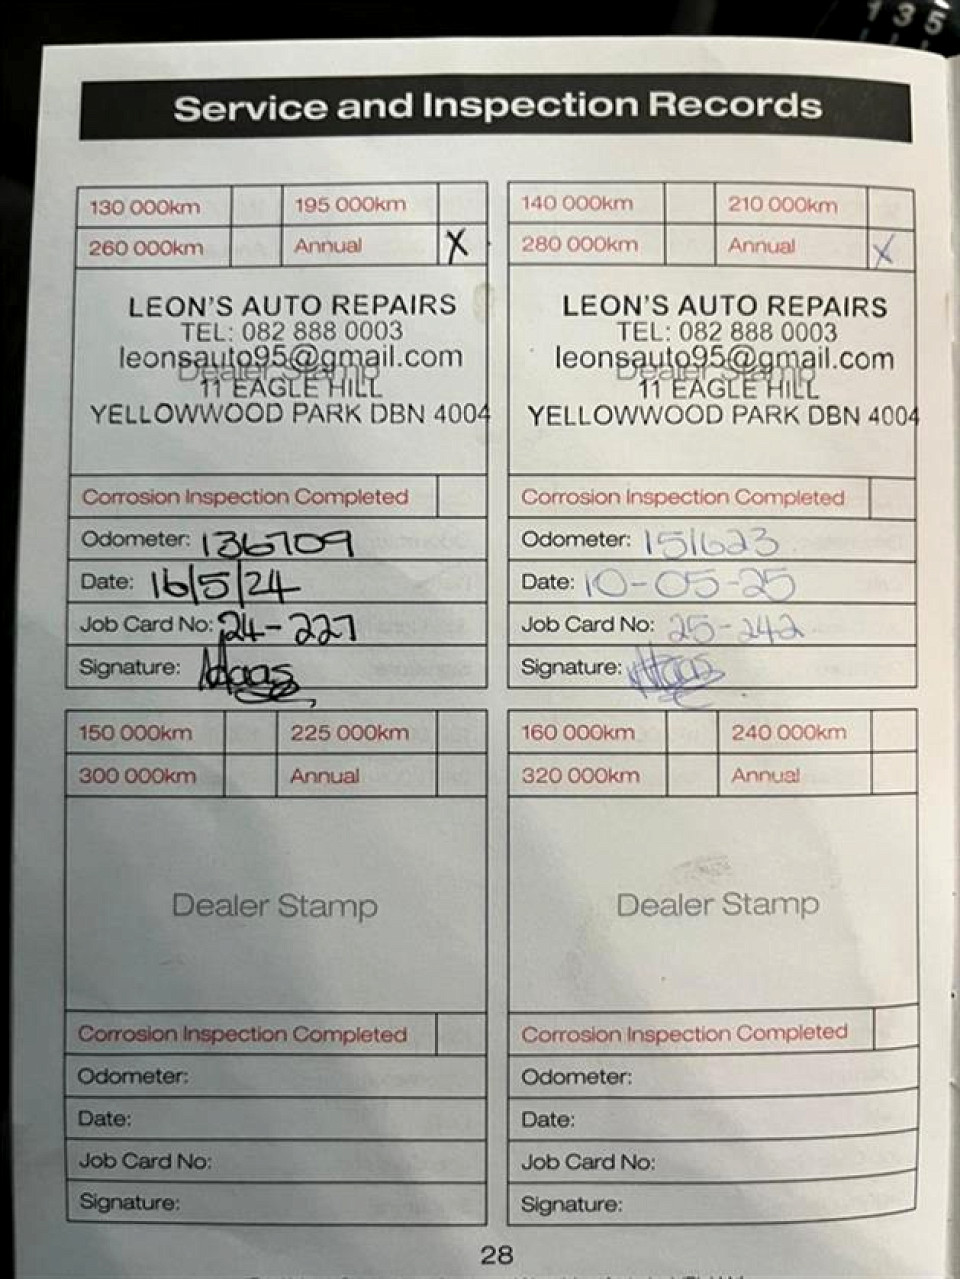 1 3 5
Service and Inspection Records
130 000km 195 000km
260 000km Annual X
LEON'S AUTO REPAIRS
TEL: 082 888 0003
leonsauto95@gmail.com
Dealer Stamp
11 EAGLE HILL
YELLOWWOOD PARK DBN 4004
Corrosion Inspection Completed
Odometer: 136709
Date: 16/5/24
Job Card No: 24-227
Signature: Haas
140 000km 210 000km
280 000km Annual X
LEON'S AUTO REPAIRS
TEL: 082 888 0003
leonsauto95@gmail.com
Dealer Stamp
11 EAGLE HILL
YELLOWWOOD PARK DBN 4004
Corrosion Inspection Completed
Odometer: 151623
Date: 10-05-25
Job Card No: 25-242
Signature: Haas
150 000km 225 000km
300 000km Annual
Dealer Stamp
Corrosion Inspection Completed
Odometer:
Date:
Job Card No:
Signature:
160 000km 240 000km
320 000km Annual
Dealer Stamp
Corrosion Inspection Completed
Odometer:
Date:
Job Card No:
Signature:
28